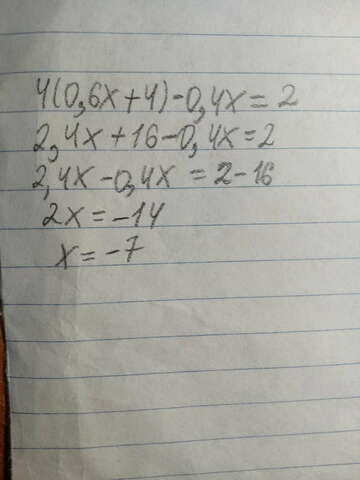 4(0,6x+4)-0,4x=2
2,4x+16-0,4x=2
2,4x-0,4x=2-16
2x=-14
x=-7